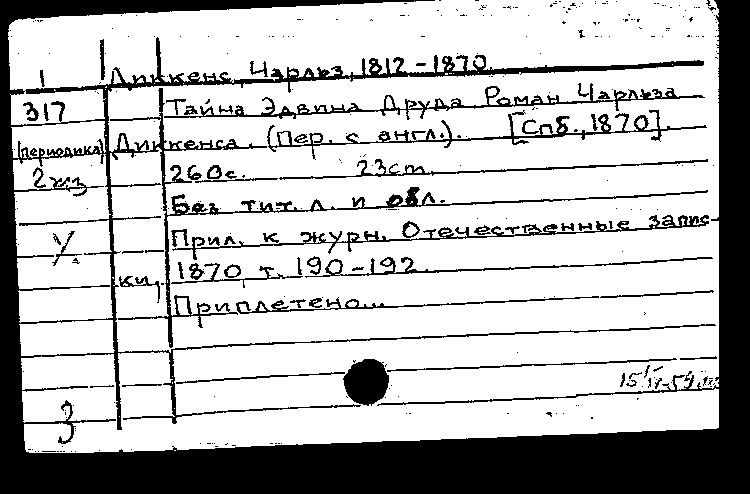 1 Диккенс, Чарльз, 1812-1870.
317 Тайна Эдвина Друда Роман Чарльза
(периодика) Диккенса. (Пер. с англ.). [Спб., 1870].
260с. 23cm.
Без тит. л. и обл.
Прил. к журн. Отечественные запис-
ки, 1870, т. 190-192.
Приплетено...
3